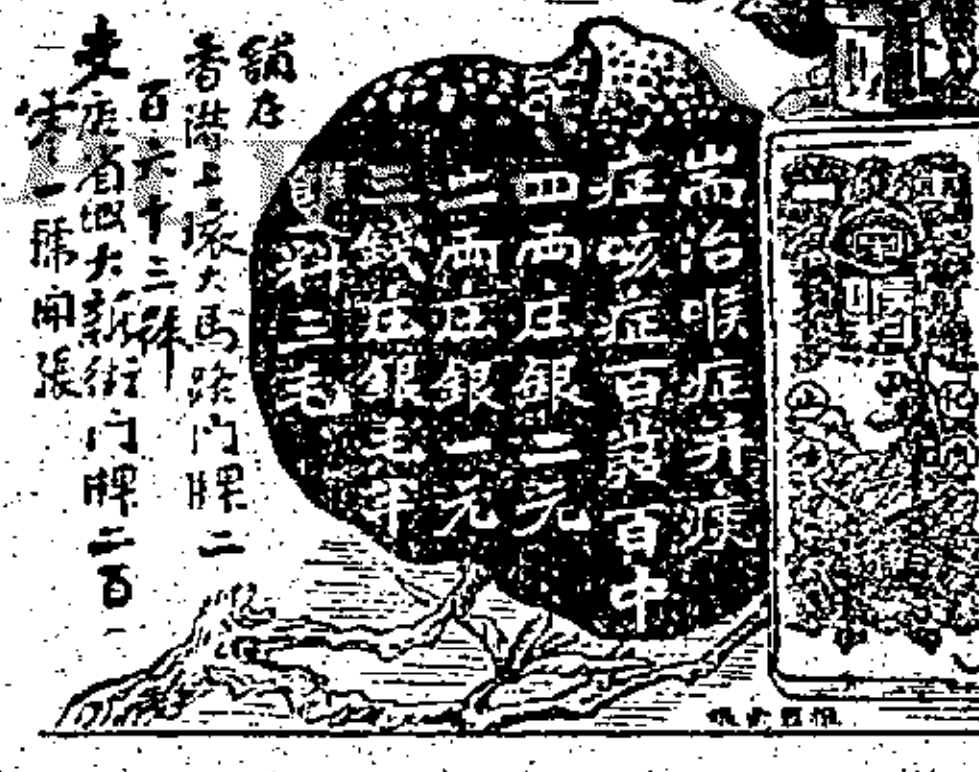 耑治喉症并痰
症咳症百發百中
四兩庄銀二元
二兩庄銀一元
三錢庄銀毛半
料二毛
舖在
香港上環大馬路門牌二
百六十三號
支店省城大新街門牌二百
零一號開張